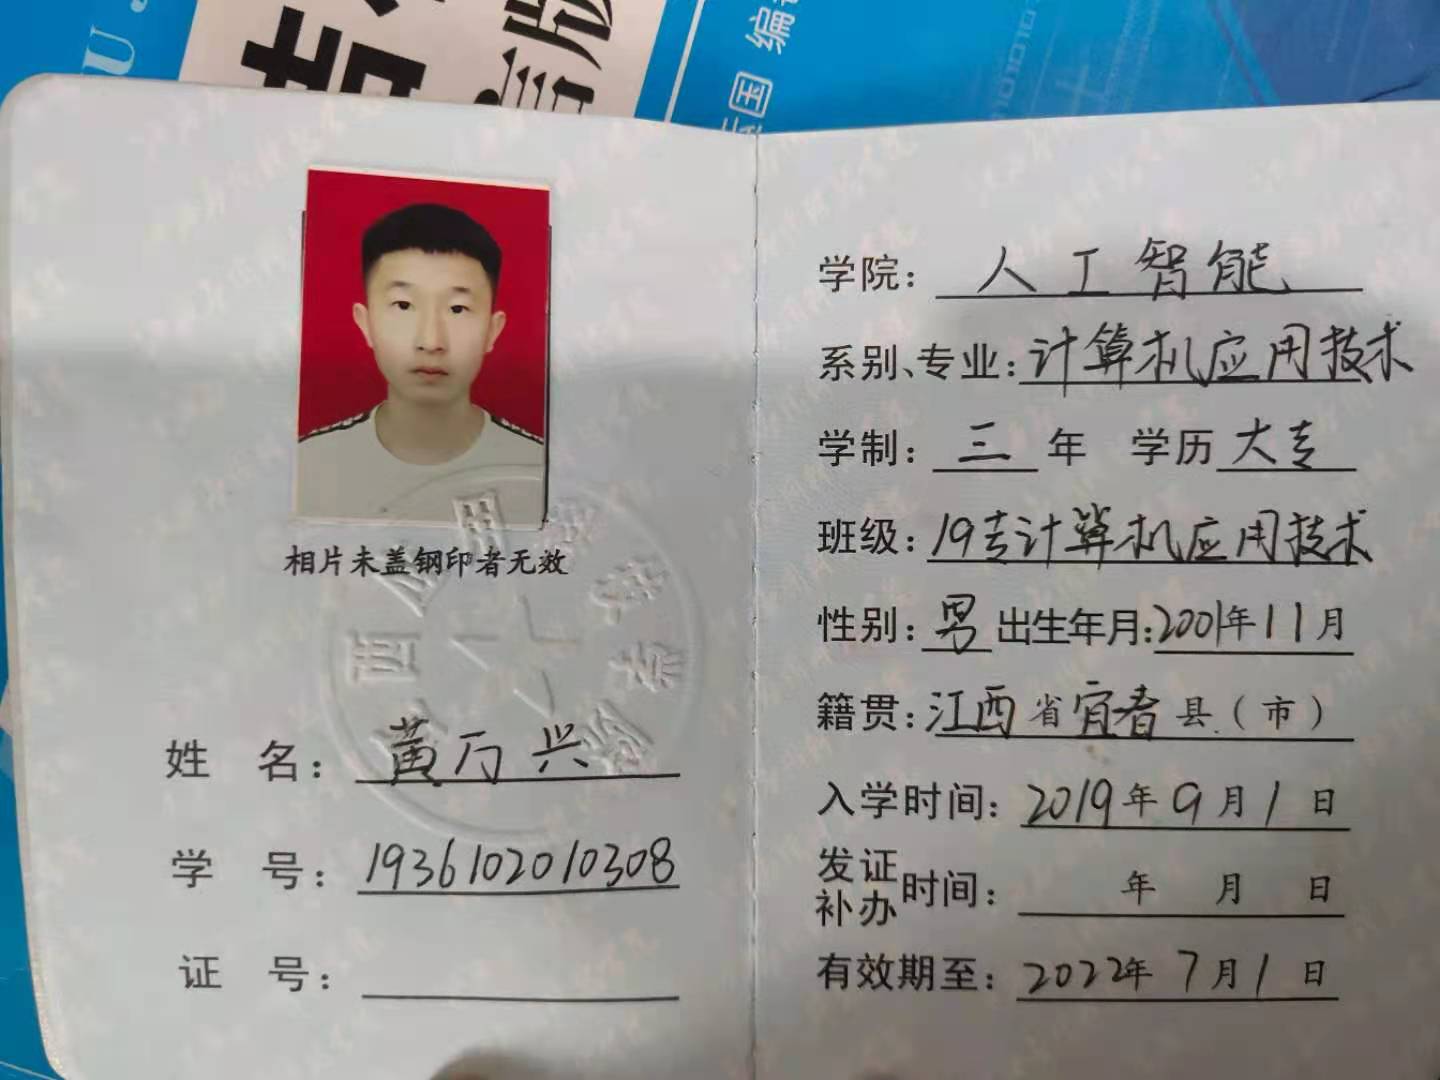 言版
国 编
相片未盖钢印者无效
姓 名：黄万兴
学 号：1936102010308
证 号：
学院：人工智能
系别、专业：计算机应用技术
学制：三 年 学历 大专
班级：19专计算机应用技术
性别：男 出生年月：2001年11月
籍贯：江西 省 宜春 县（市）
入学时间：2019 年 9 月 1 日
发证
补办 时间： 年 月 日
有效期至：2022 年 7 月 1 日